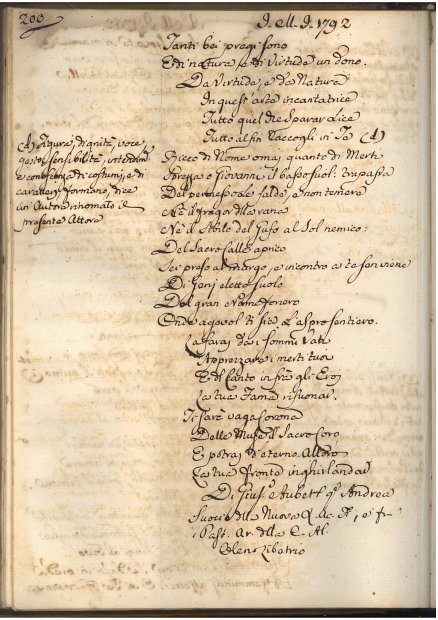 200
I. M. I. 1792
Tanti bei pregi sono
E di natura, e di Virtude un dono.
Da Virtude, e da Natura
In quest'arte incantatrice
Tutto quel che sperar lice
Tutto alfin raccogli in Te (1)
(1) Figura, dignità, voce,
gesto, sensibiltà,
e conoscenza di costumi, e di
caratteri formano, dice
un Autor rinomato il
presente Attore
Ricco di Nome omai, quanto di Merti
Sprezza o Giovanni il basso suol: trapassa
Del permesso le falde, e non temere
Nè il fragor di rana
Nè il Stbilo del Gufo al Sol nemico:
Del Sacro Calle aprico
Sei preso al margo, e incontro a te sen viene
Di Genj eletto stuolo
Del gran Nome foriero
Onde agevol ti sia l'aspro sentiero.
La farai da i sommi Vati
Apprezzare i merti tuoi
E del Canto in fra gli Eroi
La tua Fama risuonar.
Ti farà vaga Corona
Delle Muse il Sacro Coro
E potrai d'eterno Alloro
La tua fronte inghirlandar
Di Gius.e Aubert q. Andrea
della Nuova
Past. Ar. della C. Al.